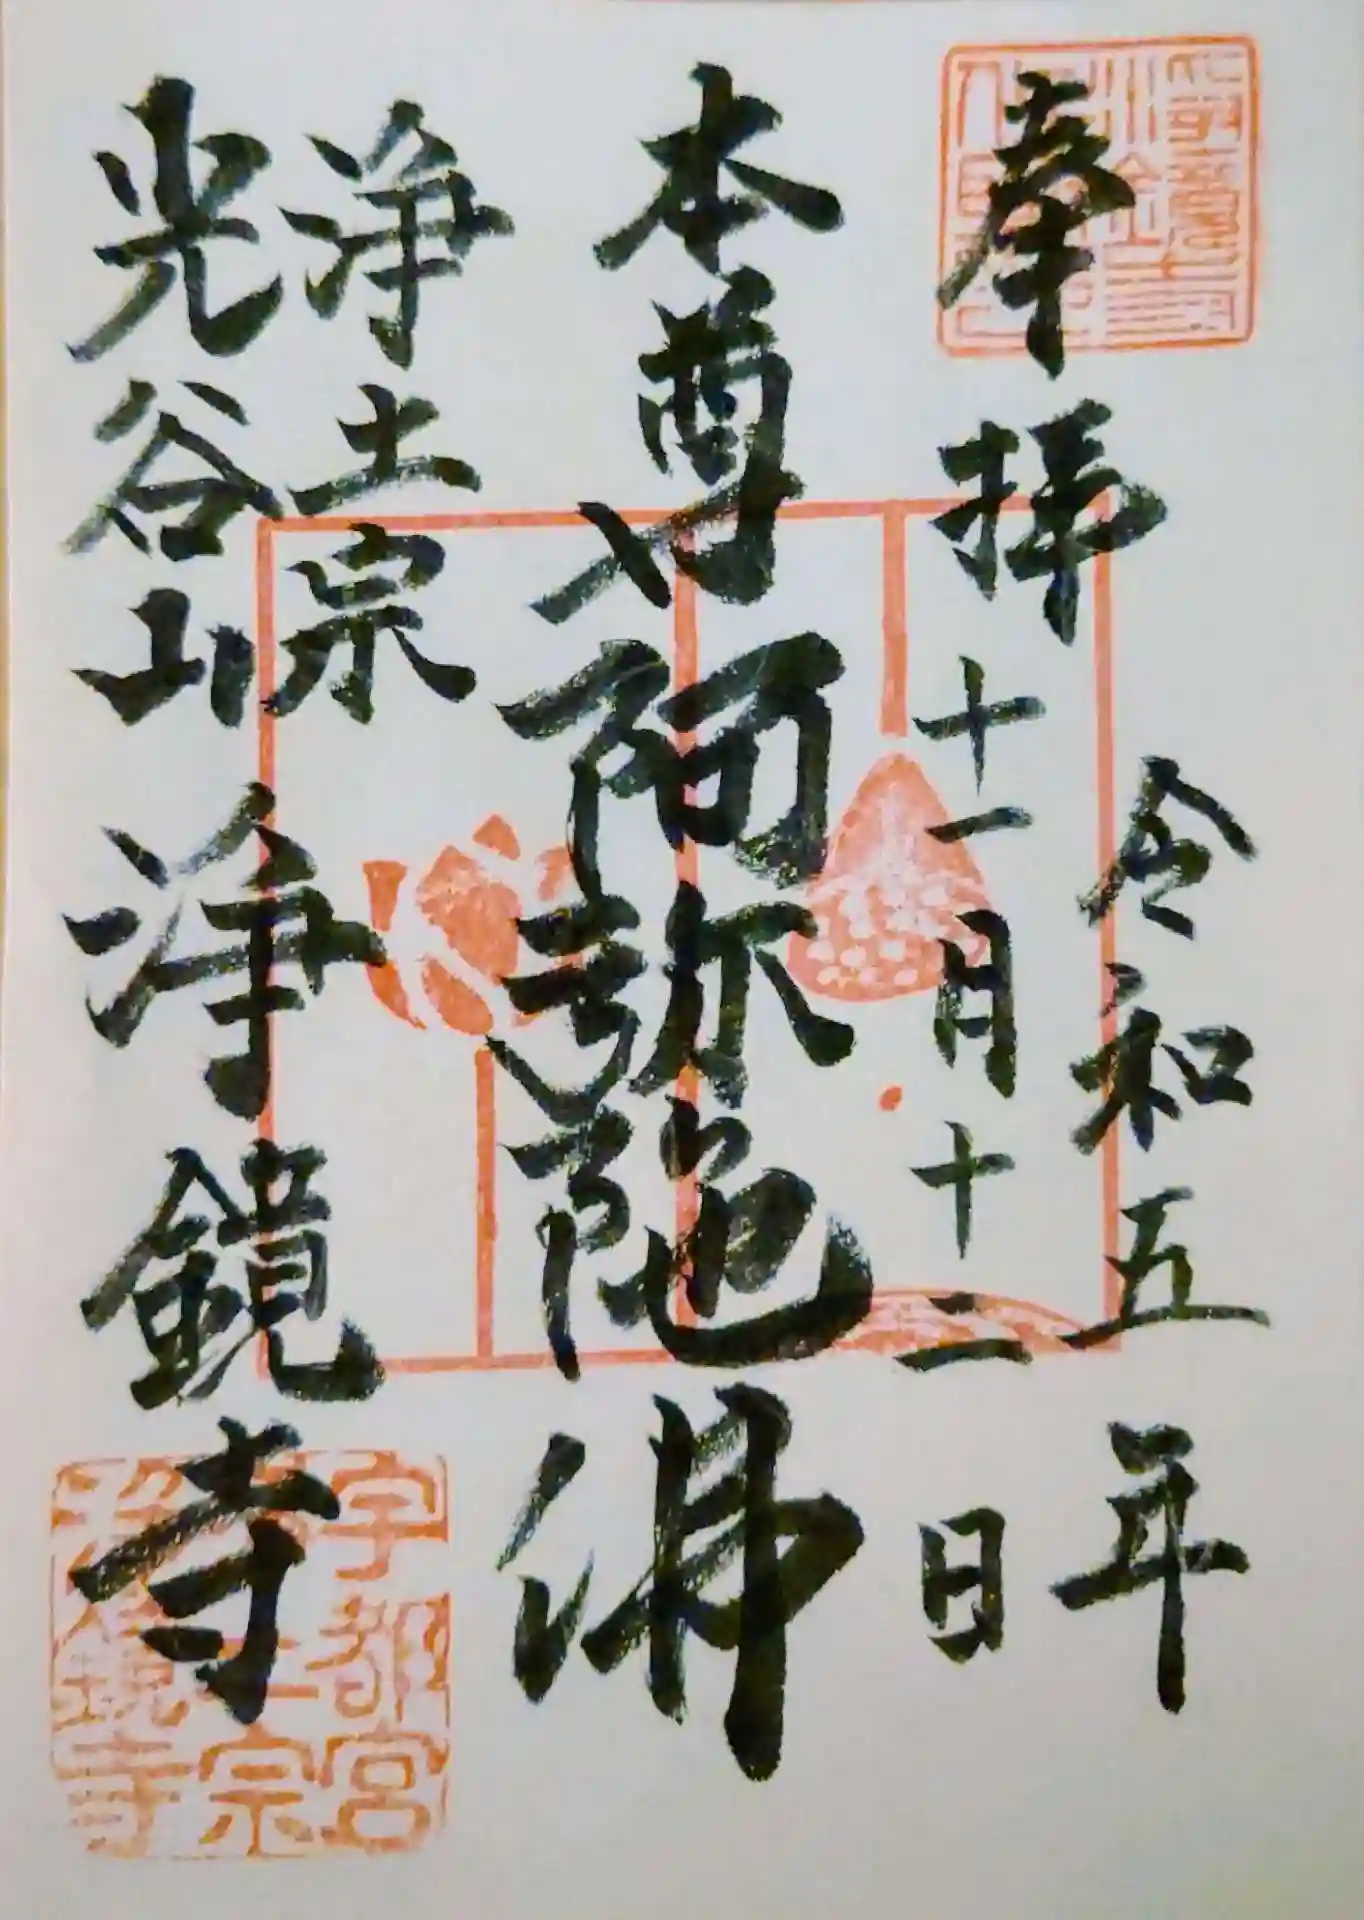 令和五年
奉拝 十一月十二日
本尊 阿弥陀佛
浄土宗
光谷山 浄鏡寺
宇都宮
宗
鏡寺